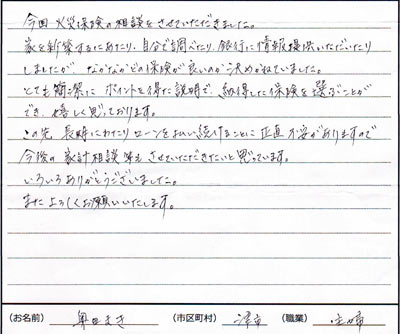 今回 火災保険の相談をさせていただきました。
家を新築するにあたり、自分で調べたり、銀行に情報提供いただいたり
しましたが、なかなかどの保険が良いのか決めかねていました。
とても簡潔に ポイントを得た説明で、納得した保険を選ぶことが
でき、嬉しく思っております。
この先 長期にわたり ローンを払い続けることに 正直 不安がありますので
今後の 家計相談等も させていただきたいと思っています。
いろいろありがとうございました。
またよろしくお願いいたします。
(お名前) 奥田まき (市区町村) 津市 (職業) 主婦